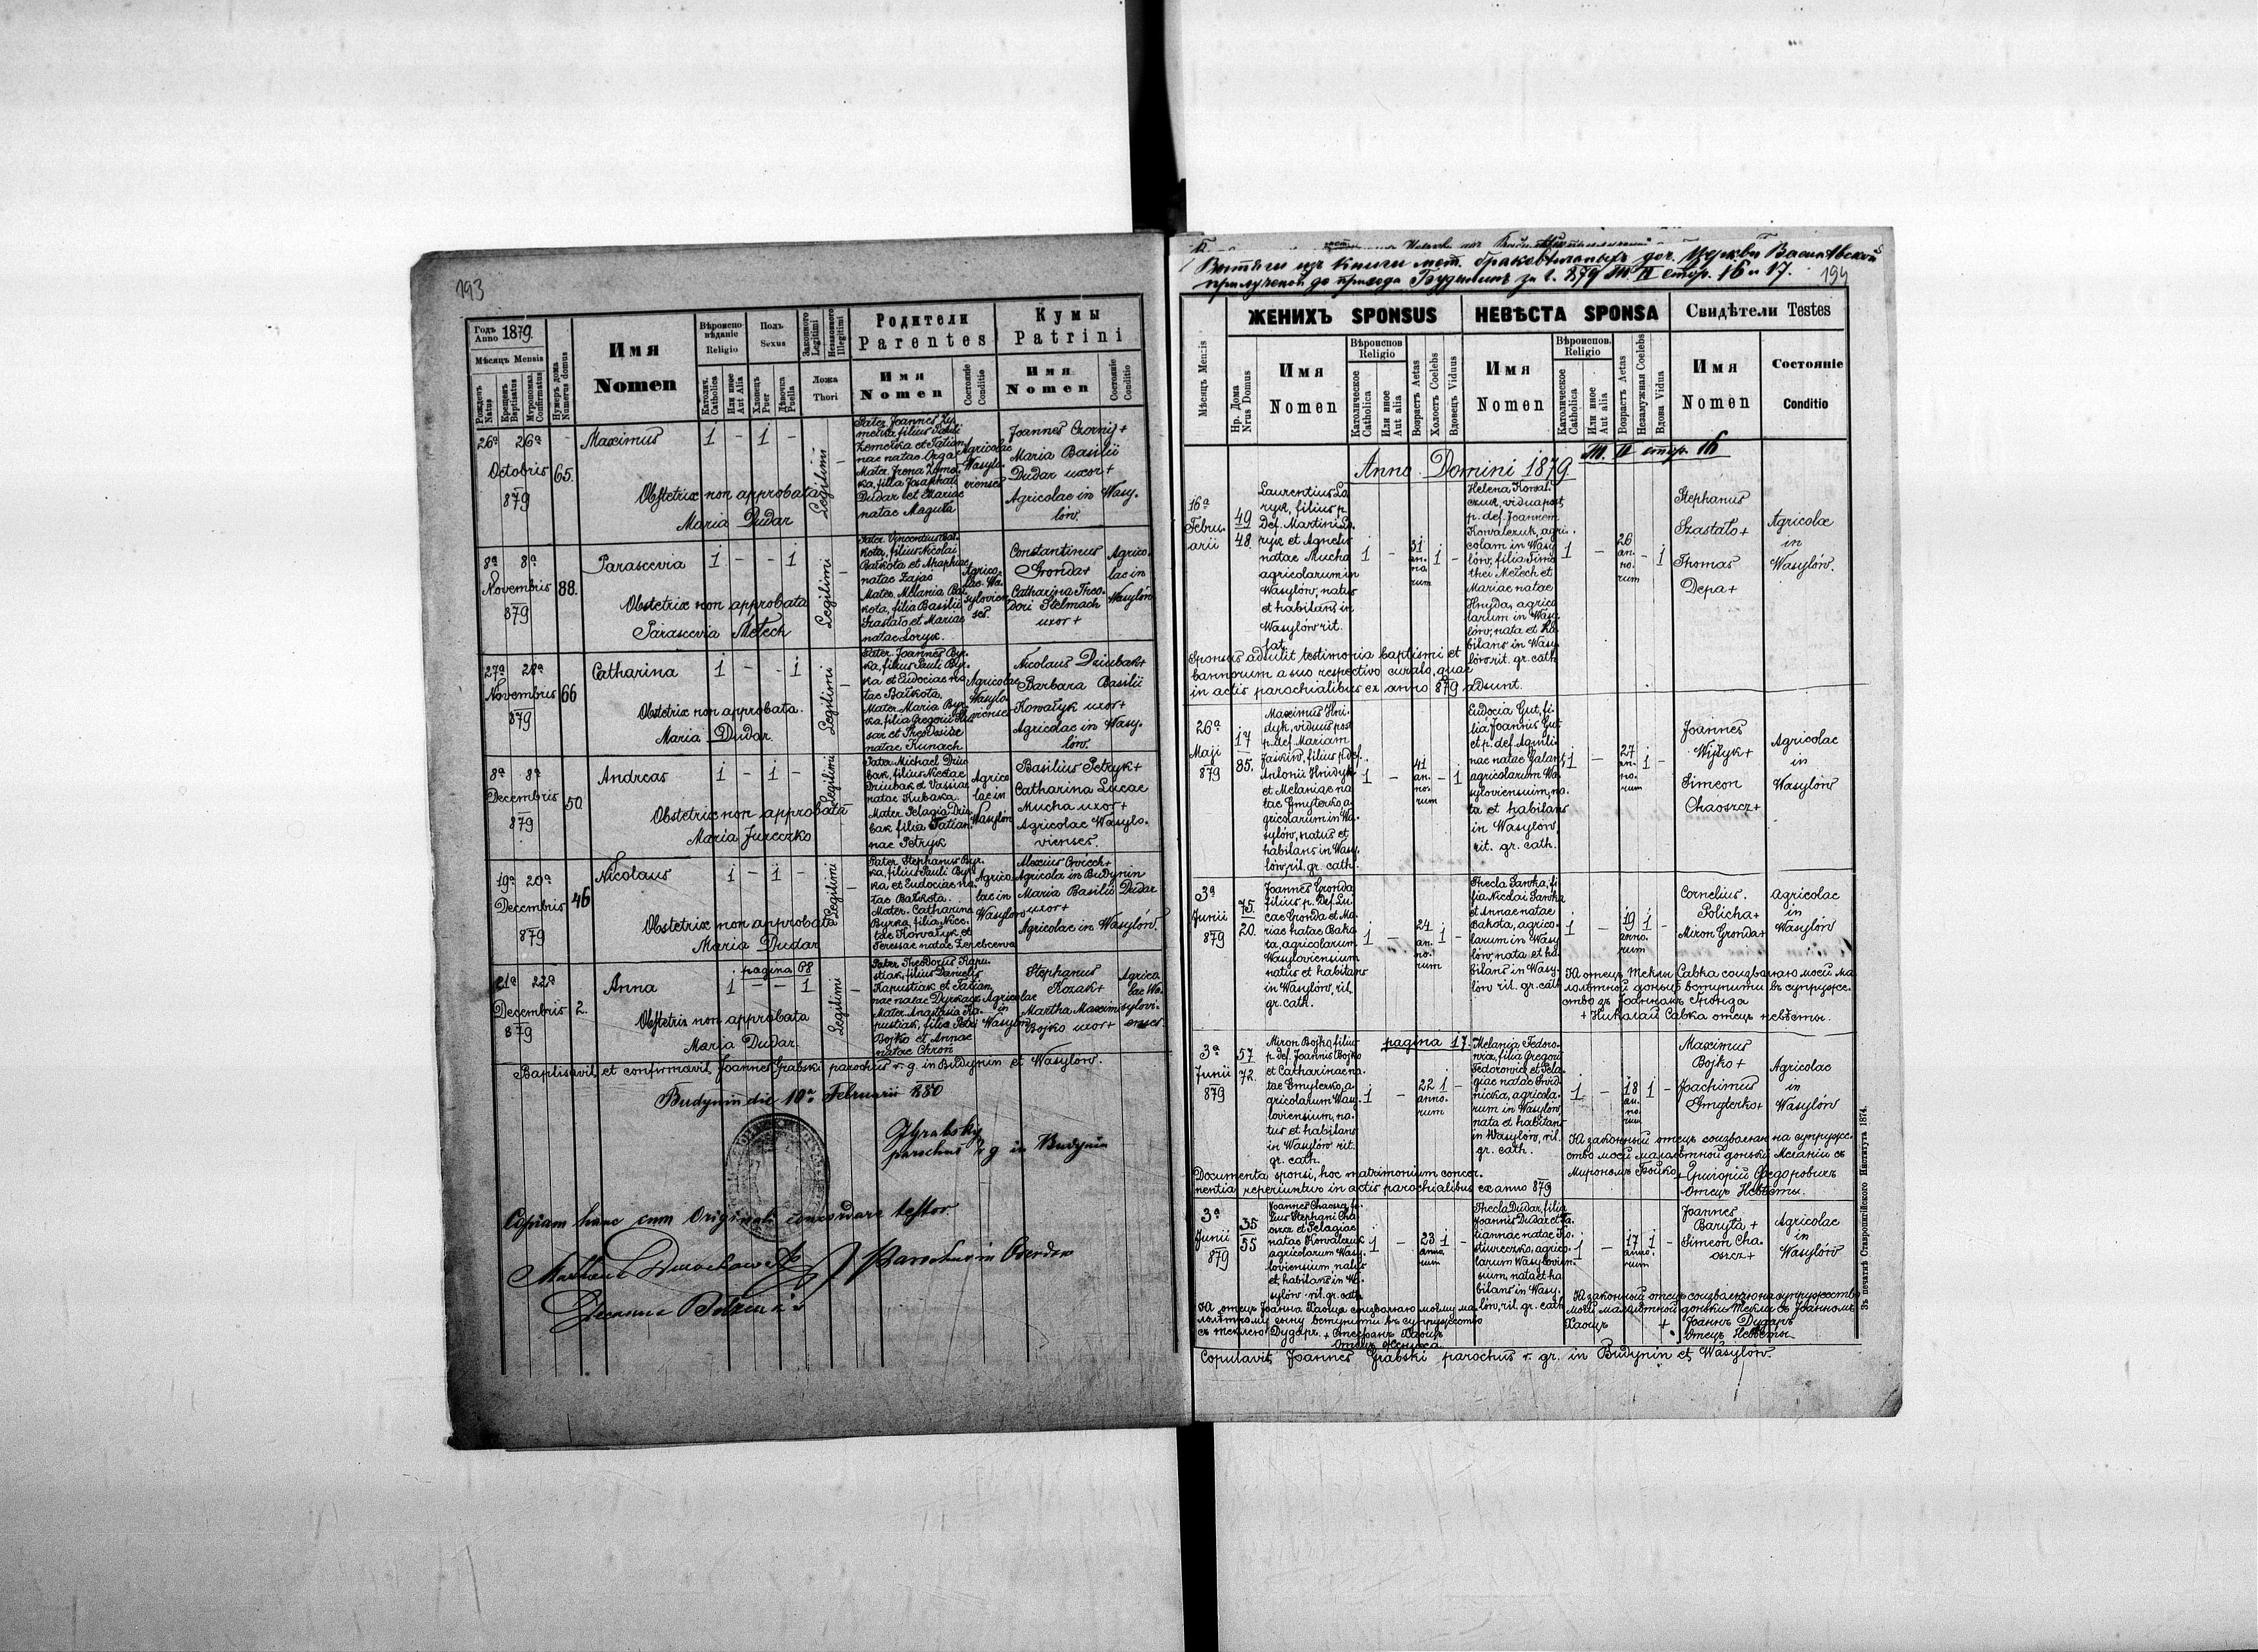 193
Годъ Anno 1879.
Мѣсяцъ Mensis
Рожденъ Natus
Крещенъ Baptisatus
Мѵропомаз. Confirmatus
Нумеръ дома Numerus domus
Имя
Nomen
Вѣроиспо-
вѣданіе
Religio
Католич. Catholica
Или иное Aut Alia
Полъ
Sexus
Хлопецъ Puer
Дѣвочка Puella
Законного Legitimi
Незаконного Illegitimi
Ложа
Thori
Родители
Parentes
Имя
Nomen
Состояніе Conditio
Кумы
Patrini
Имя
Nomen
Состояніе Conditio
26a 26a
Octobris
879
65.
Maximus
1 - 1 -
Obstetrix non approbata
Maria Dudar
Legitimi
Pater Joannes
filius
et Tatian
nae natae
Mater
ka, filia Josaphati
Dudar et Mariae
natae Maguła
Agricolae
Wasylo-
vienses
Joannes Czornij +
Maria Basilii
Dudar uxor +
Agricolae in Wasy-
lów.
8a 8a
Novembris
879
88.
Parascevia
1 - - 1
Obstetrix non approbata
Parascevia Mełech
Legitimi
Pater Vincentius Bał-
kota, filius Nicolai
Bałkota et Ahaphiae
natae Zając
Mater Melania Bał-
kota, filia Basilii
Szastało et Mariae
natae Łoryk.
Agrico-
lae Wa-
sylovien-
ses.
Constantinus
Gronda +
Catharina Theo-
dori Stelmach
uxor +
Agrico-
lae in
Wasylów
27a 28a
Novembris
879
66
Catharina
1 - - 1
Obstetrix non approbata.
Maria Dudar.
Legitimi
Pater Joannes Byr-
ka, filius Pauli Byr-
ka et Eudociae na-
tae Bałkota,
Mater Maria Byr-
ka, filia Gregorii
sar et Theodosiae
natae Kunach
Agricolae
Wasylo-
vienses
Nicolaus Dziubak +
Barbara Basilii
Kowałyk uxor +
Agricolae in Wasy-
lów.
8a 8a
Decembris
879
50
Andreas
1 - 1 -
Obstetrix non approbata
Maria Jureczko
Legitimi
Pater Michael Dziu-
bak, filius Nicolae
Dziubak et Vassiae
natae Kubaka.
Mater Pelagia Dziu-
bak filia Tatian-
nae Petryk
Agrico-
lae in
Wasylów
Basilius Petryk +
Catharina Lucae
Mucha uxor +
Agricolae Wasylo-
vienses.
19a 20a
Decembris
879
46
Nicolaus
1 - 1 -
Obstetrix non approbata
Maria Dudar
Legitimi
Pater Stephanus Byr-
ka, filius Pauli Byr-
ka, et Eudociae na-
tae Bałkota.
Mater Catharina
Byrka, filia Nice-
tae Kowałyk et
Teressae natae Zerebcewa
Agrico-
lae in
Wasylów
Alexius
Agricola in Budynin
Maria Basilii Dudar
uxor +
Agricolae in Wasylów.
21a 22a
Decembris
879
2.
pagina 68
Anna
1 - - 1
Obstetrix non approbata
Maria Dudar.
Legitimi
Pater Theodorus Kapu-
stiak, filius Danielis
Kapustiak et Tatian-
nae natae Dyrkacz
Mater Anastasia Ka-
pustiak, filia Petri
Bojko et Annae
natae Chron
Agricolae
in
Wasylów
Stephanus
Kozak +
Martha Maximi
Bojko uxor +
Agrico-
lae Wa-
sylovi-
enses.
Baptisavit et confirmavit Joannes Grabski parochus r. g. in Budynin et Wasylów.
Budynin die 10a Februarii 880
JGrabsky
parochus r. g in Budynin
Copiam hanc cum Originali concordare testor
Parochus in
Decanus Belzensis
Вытяги изъ книги мет. браковѣнчаныхъ доч. Церкви Василѣвской
прилученой до прихода Будынинъ за г. 879 Т. II стор. 16 и 17.
194
Мѣсяцъ Mensis
Нр. Дома Nrus Domus
ЖЕНИХЪ SPONSUS
НЕВѢСТА SPONSA
Свидѣтели Testes
Имя
Nomen
Вѣроиспов.
Religio
Католическое Catholica
Или иное Aut alia
Возрастъ Aetas
Холостъ Coelebs
Вдовецъ Viduus
Имя
Nomen
Вѣроиспов.
Religio
Католическое Catholica
Или иное Aut alia
Возрастъ Aetas
Незамужная Coelebs
Вдова Vidua
Имя
Nomen
Состояніе
Conditio
Т. II стор. 16
Anno Domini 1879
16a
Febru-
arii
49
48.
Laurentius Ło-
ryk, filius p.
def. Martini Ło-
ryk et Agnetis
natae Mucha
agricolarum in
Wasylów, natus
et habitans in
Wasylów rit.
lat.
1 - 31 an-
no-
rum 1 -
Helena Kowal-
czuk, vidua post
p. def. Joannem
Kowalczuk, agri-
colam in Wasy-
lów, filia Timo-
thei Mełech et
Mariae natae
Hnyda, agrico-
larum in Wasy-
lów, nata et ha-
bitans in Wasy-
lów rit. gr. cath
1 - 26
an-
no-
rum - 1
Stephanus
Szastało +
Thomas
Depa +
Agricolae
in
Wasylów.
Sponsus adtulit testimonia baptismi et
bannorum a suo respectivo curato, quae
in actis parochialibus ex anno 879 adsunt.
26a
Maji
879
17
85.
Maximus Hni-
dyk, viduus post
p. def. Mariam
Jaskiw, filius p. def.
Antonii Hnidyk
et Melaniae na-
tae Gmyterko, a-
gricolarum in Wa-
sylów, natus et
habitans in Wasy-
lów, rit. gr. cath.
1 - 41
an-
no-
rum - 1
Eudocia Gut, fi-
lia Joannis Gut
et p. def. Aquili-
nae natae Galan,
agricolarum Wa-
syloviensium, na-
ta et habitans
in Wasylów,
rit. gr. cath.
1 - 27
an-
no-
rum 1 -
Joannes
Wijtyk +
Simeon
Chaoszcz +
Agricolae
in
Wasylów
3a
Junii
879
75.
20.
Joannes Gronda
filius p. Def. Lu-
cae Gronda et Ma-
riae natae Bako-
ta, agricolarum
Wasyloviensium
natus et habitans
in Wasylów, rit.
gr. cath.
1 - 24
an-
no-
rum 1 -
Thecla Sawka, fi-
lia Nicolai Sawka
et Annae natae
Bakota, agrico-
larum in Wasy-
lów, nata et ha-
bitans in Wasy-
lów rit. gr. cath
1 - 19
anno-
rum 1 -
Cornelius
Policha +
Miron Gronda +
Agricolae
in
Wasylów
Я отецъ Теклы Савка соизваляю моєй ма-
лолѣтной доньцѣ вступити въ супруже-
ство зъ Іоанномъ Гронда
+ Николай Савка отецъ невѣсты.
3a
Junii
879
57
72.
Miron Bojko, filius
p. def. Joannis Bojko
et Catharinae na-
tae Gmyterko, a-
gricolarum Wasy-
loviensium, na-
tus et habitans
in Wasylów rit.
gr. cath.
pagina 17.
1 - 22
anno-
rum 1 -
Melania Fedoro-
wicz, filia Gregorii
Fedorowicz et Pela-
giae natae Gnid-
nicka, agricola-
rum in Wasylów,
nata et habitans
in Wasylów, rit.
gr. cath.
1 - 18
an-
no-
rum 1 -
Maximus
Bojko +
Joachimus
Gmyterko +
Agricolae
in
Wasylów
Я законный отецъ соизваляю на супруже-
ство моєй малолѣтной доньки Меланіи съ
Мирономъ Бойко + Григорій Федоровичъ
Отецъ Невѣсты.
Documenta sponsi, hoc matrimonium concer-
nentia, reperiuntur in actis parochialibus ex anno 879
3a
Junii
879
35
55
Joannes Chaoszcz, fi-
lius Stephani Cha-
oszcz et Pelagiae
natae Kowalczuk
agricolarum Wasy-
loviensium, natus
et habitans in Wa-
sylów rit. gr. cath.
1 - 23
anno-
rum 1 -
Thecla Dudar, filia
Joannis Dudar et Ta-
tiannae natae Ko-
stiureczko, agrico-
larum Wasylovien-
sium, nata et ha-
bitans in Wasy-
lów, rit. gr. cath
1 - 17
anno-
rum 1 -
Joannes
Baryła +
Simeon Cha-
oszcz +
Agricolae
in
Wasylów
Я отецъ Іоанна Хаощъ соизваляю моєму ма-
лолѣтному сыну вступити въ супружество
съ Теклею Дударъ. + Стефанъ Хаощъ
Отецъ Жениха
Я законный отецъ соизваляю на супружество
моєй малолѣтной доньки Теклы съ Іоанномъ
Хаощъ + Іоаннъ Дударъ
Отецъ Невѣсты
Copulavit Joannes Grabski parochus r. gr. in Budynin et Wasylów.
Зъ печатнѣ Ставропигійского Института 1874.